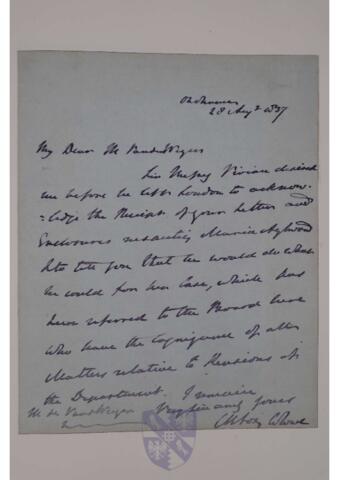 Ordnance
28 Augt 1837
My Dear M. Van de Weyer
Sir Hussey Vivian desired
me before he left London to acknow-
=ledge the Receipt of your Letter and
Enclosures respecting Maria Aylward
& to tell you that he would do what
he could for her Case, which has
been referred to the Board here
who have the Cognizance of all
Matters relative to Pensions of
the Department. I remain
Very sincerely yours
M. de Van de Weyer